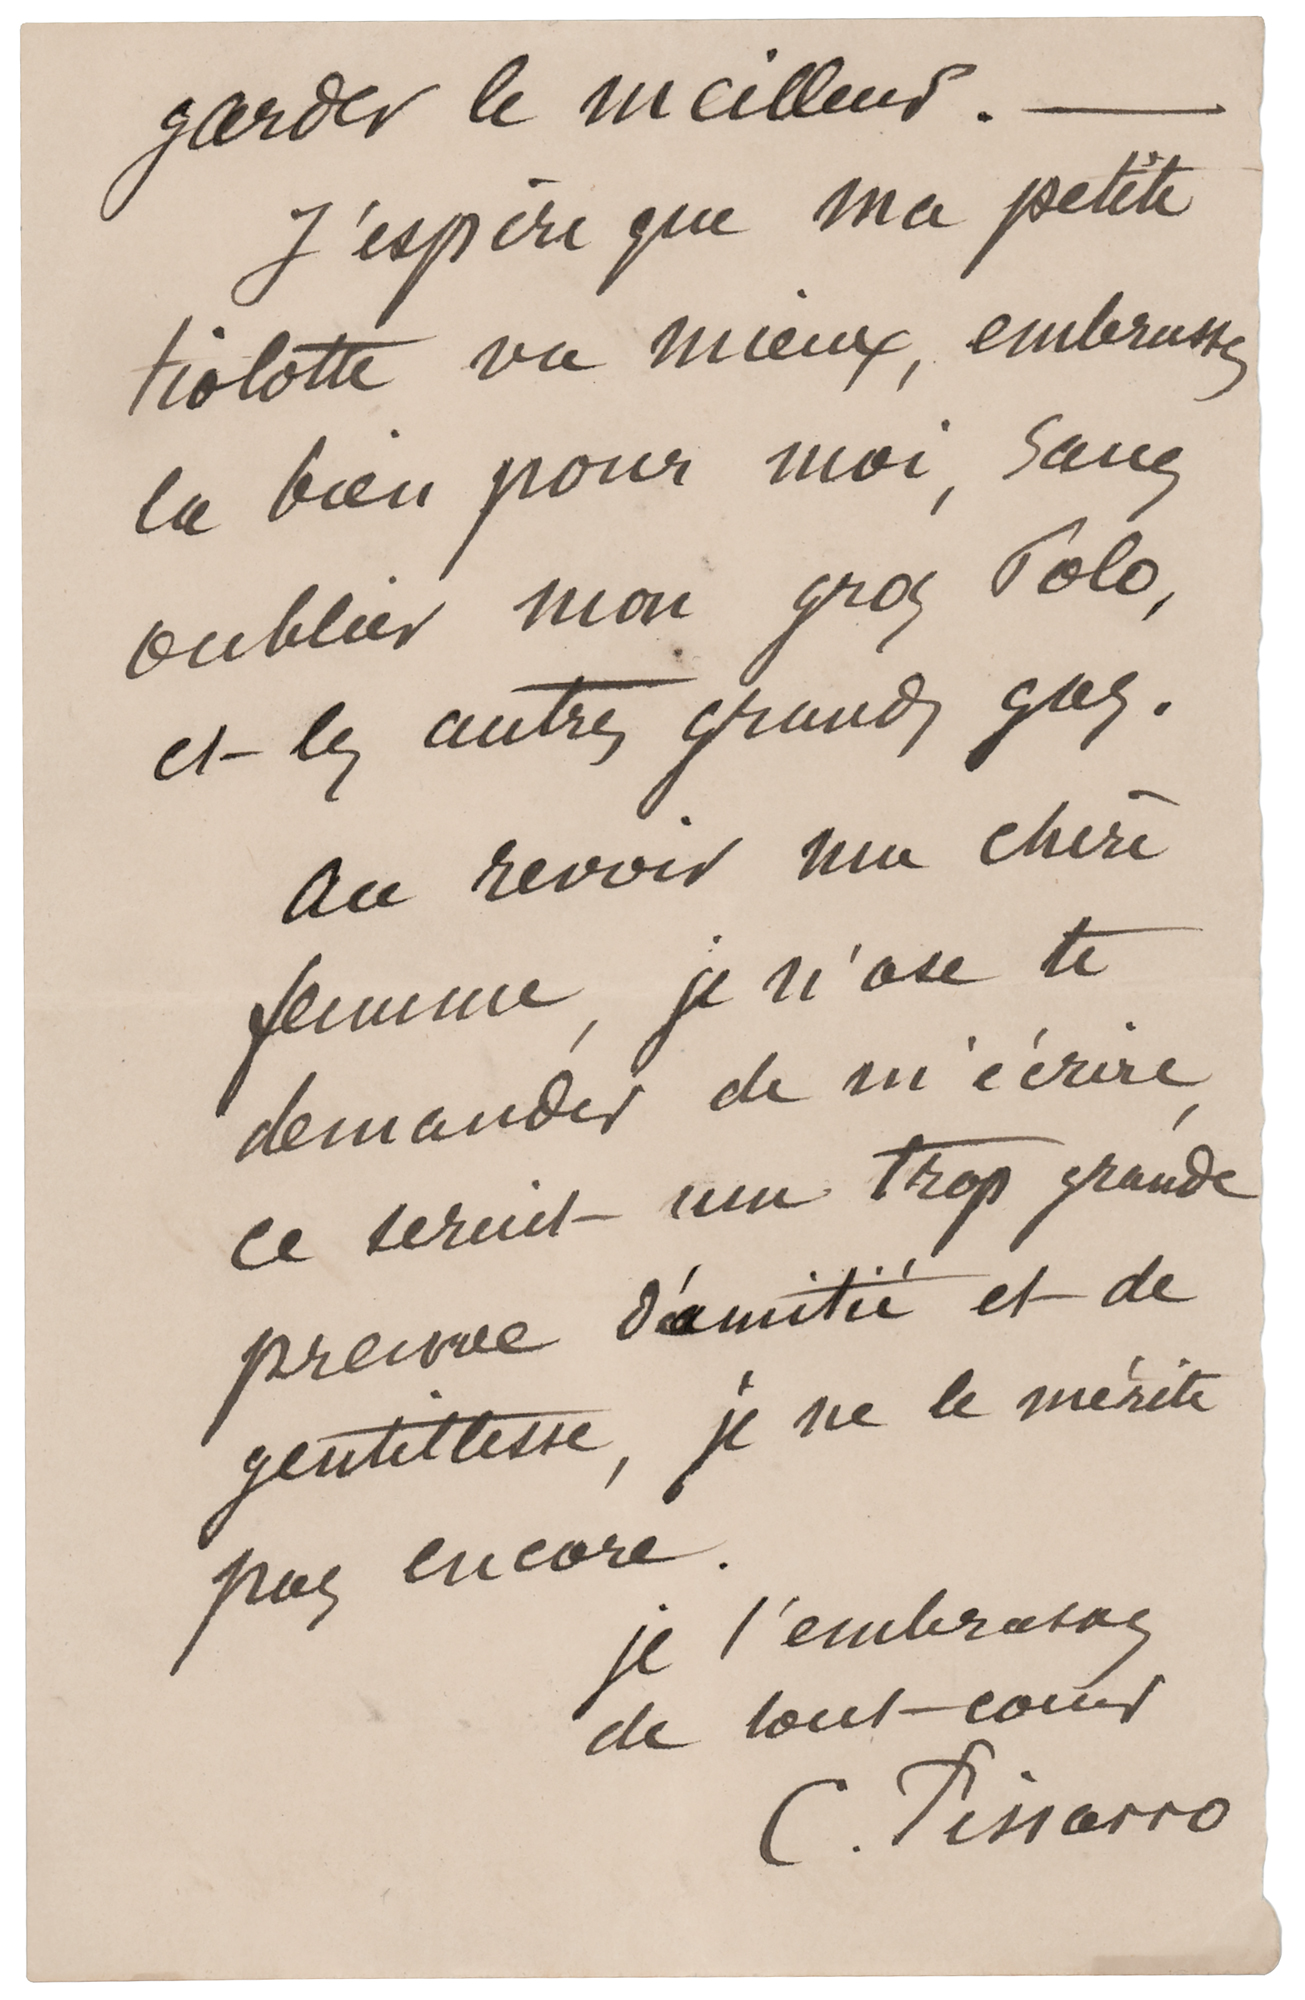 garder le meilleur. —
J'espère que ma petite
tiolotte va mieux, embrasses
la bien pour moi, sans
oublier mon gros Polo,
et les autres grands gas.
Au revoir ma chère
femme, je n'ose te
demander de m'écrire,
ce serait une trop grande
preuve d'amitié et de
gentillesse, je ne le mérite
pas encore.
je t'embrasse
de tout cœur
C. Pissarro